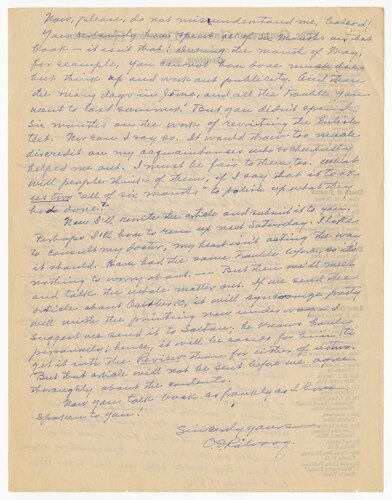 Now, please, do not misunderstand me,
You certainly have spent all of six months on that
book — it isn't that! During the month of May,
for example, you can not have done much else
but think up and work out publicity. And then
the many days in Iowa, and all the trouble you
went to last summer. But you didn't spend
six months on the work of rewriting the
text. Nor can I say so. It would throw too much
discredit on my acquaintances who so cheerfully
helped me out. I must be fair to them, too. What
will people think of them, if I say that it took
us two "all of six months," to polish up what they
had done?
Now I'll rewrite the article and submit it to you.
Perhaps I'll come to run up next Saturday. I have
to consult my doctor, my heart isn't acting the way
it should. Have had the same trouble before, so it's
nothing to worry about. — But then we'll meet
and talk the whole matter out. If we send the
article about October 10, it will syncronize pretty
well with the printing now under way. I
suggest we send it to he knows
personally; hence, it will be easier for him to
get it into the Review than for either of us two.
But that article will not be sent before we agree
thoroughly about the contents.
Now you talk back as frankly as I have
spoken to you!
Sincerely yours